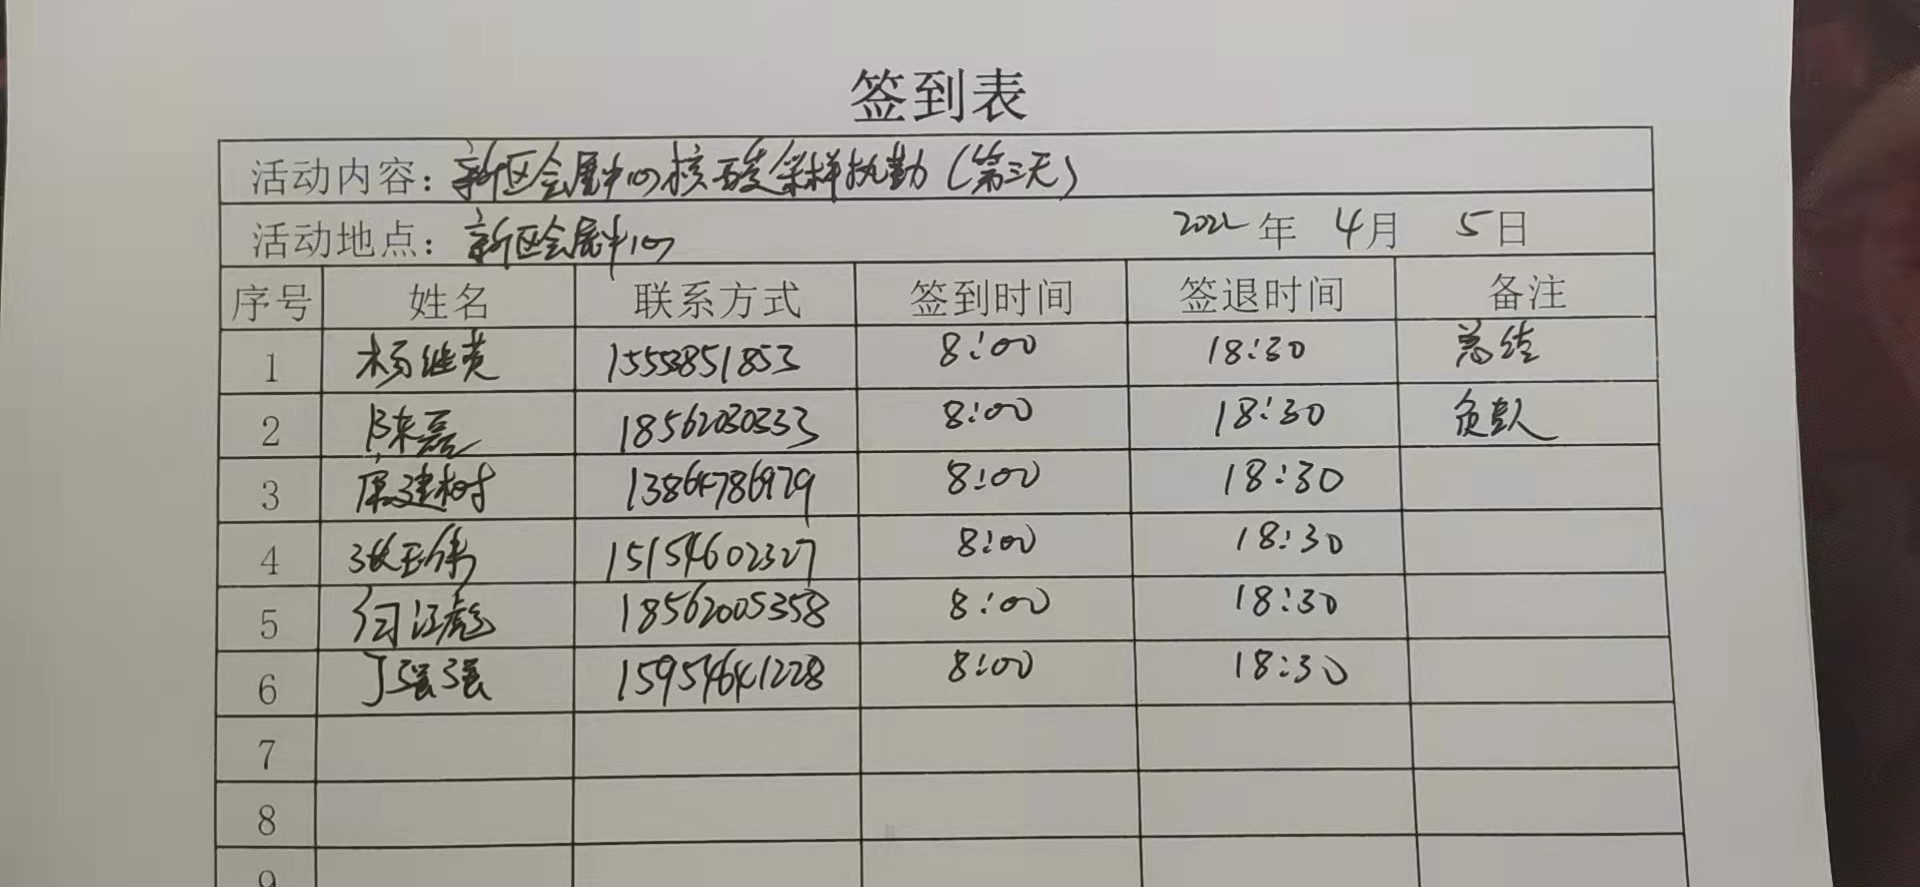 签到表
活动内容：新区会展中心核酸采样执勤（第三天）
活动地点：新区会展中心 2022年 4月 5日
序号 姓名 联系方式 签到时间 签退时间 备注
1 杨继英 8:00 18:30 总结
2 陈磊 18562030333 8:00 18:30
3 建树 13864786979 8:00 18:30
4 张玉伟 15154602327 8:00 18:30
5 江彪 18562005358 8:00 18:30
6 丁强强 15954641228 8:00 18:30
7
8
9